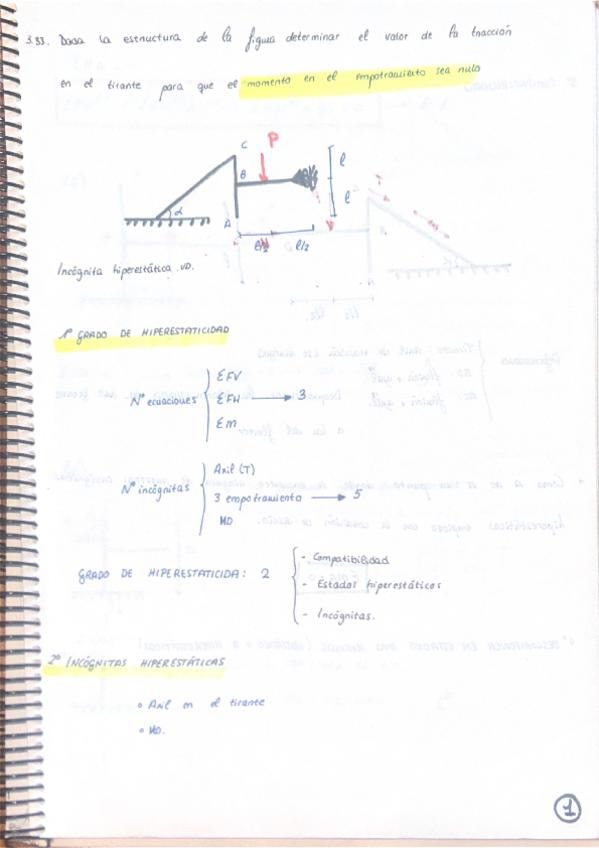 3.33. Dada la estructura de la figura determinar el valor de la tracción
en el tirante para que el momento en el empotramiento sea nulo
P
C
B
l
α
l
A
l/2 l/2
Incógnita hiperestática. VD.
1º GRADO DE HIPERESTATICIDAD
Nº ecuaciones { ΣFV
ΣFH → 3
ΣM
Nº incógnitas { Axil (T)
3 empotramiento → 5
MD
GRADO DE HIPERESTATICIDA: 2 { - Compatibilidad
- Estados hiperestáticos
- Incógnitas.
2º INCÓGNITAS HIPERESTÁTICAS
Axil en el tirante
MD.
1